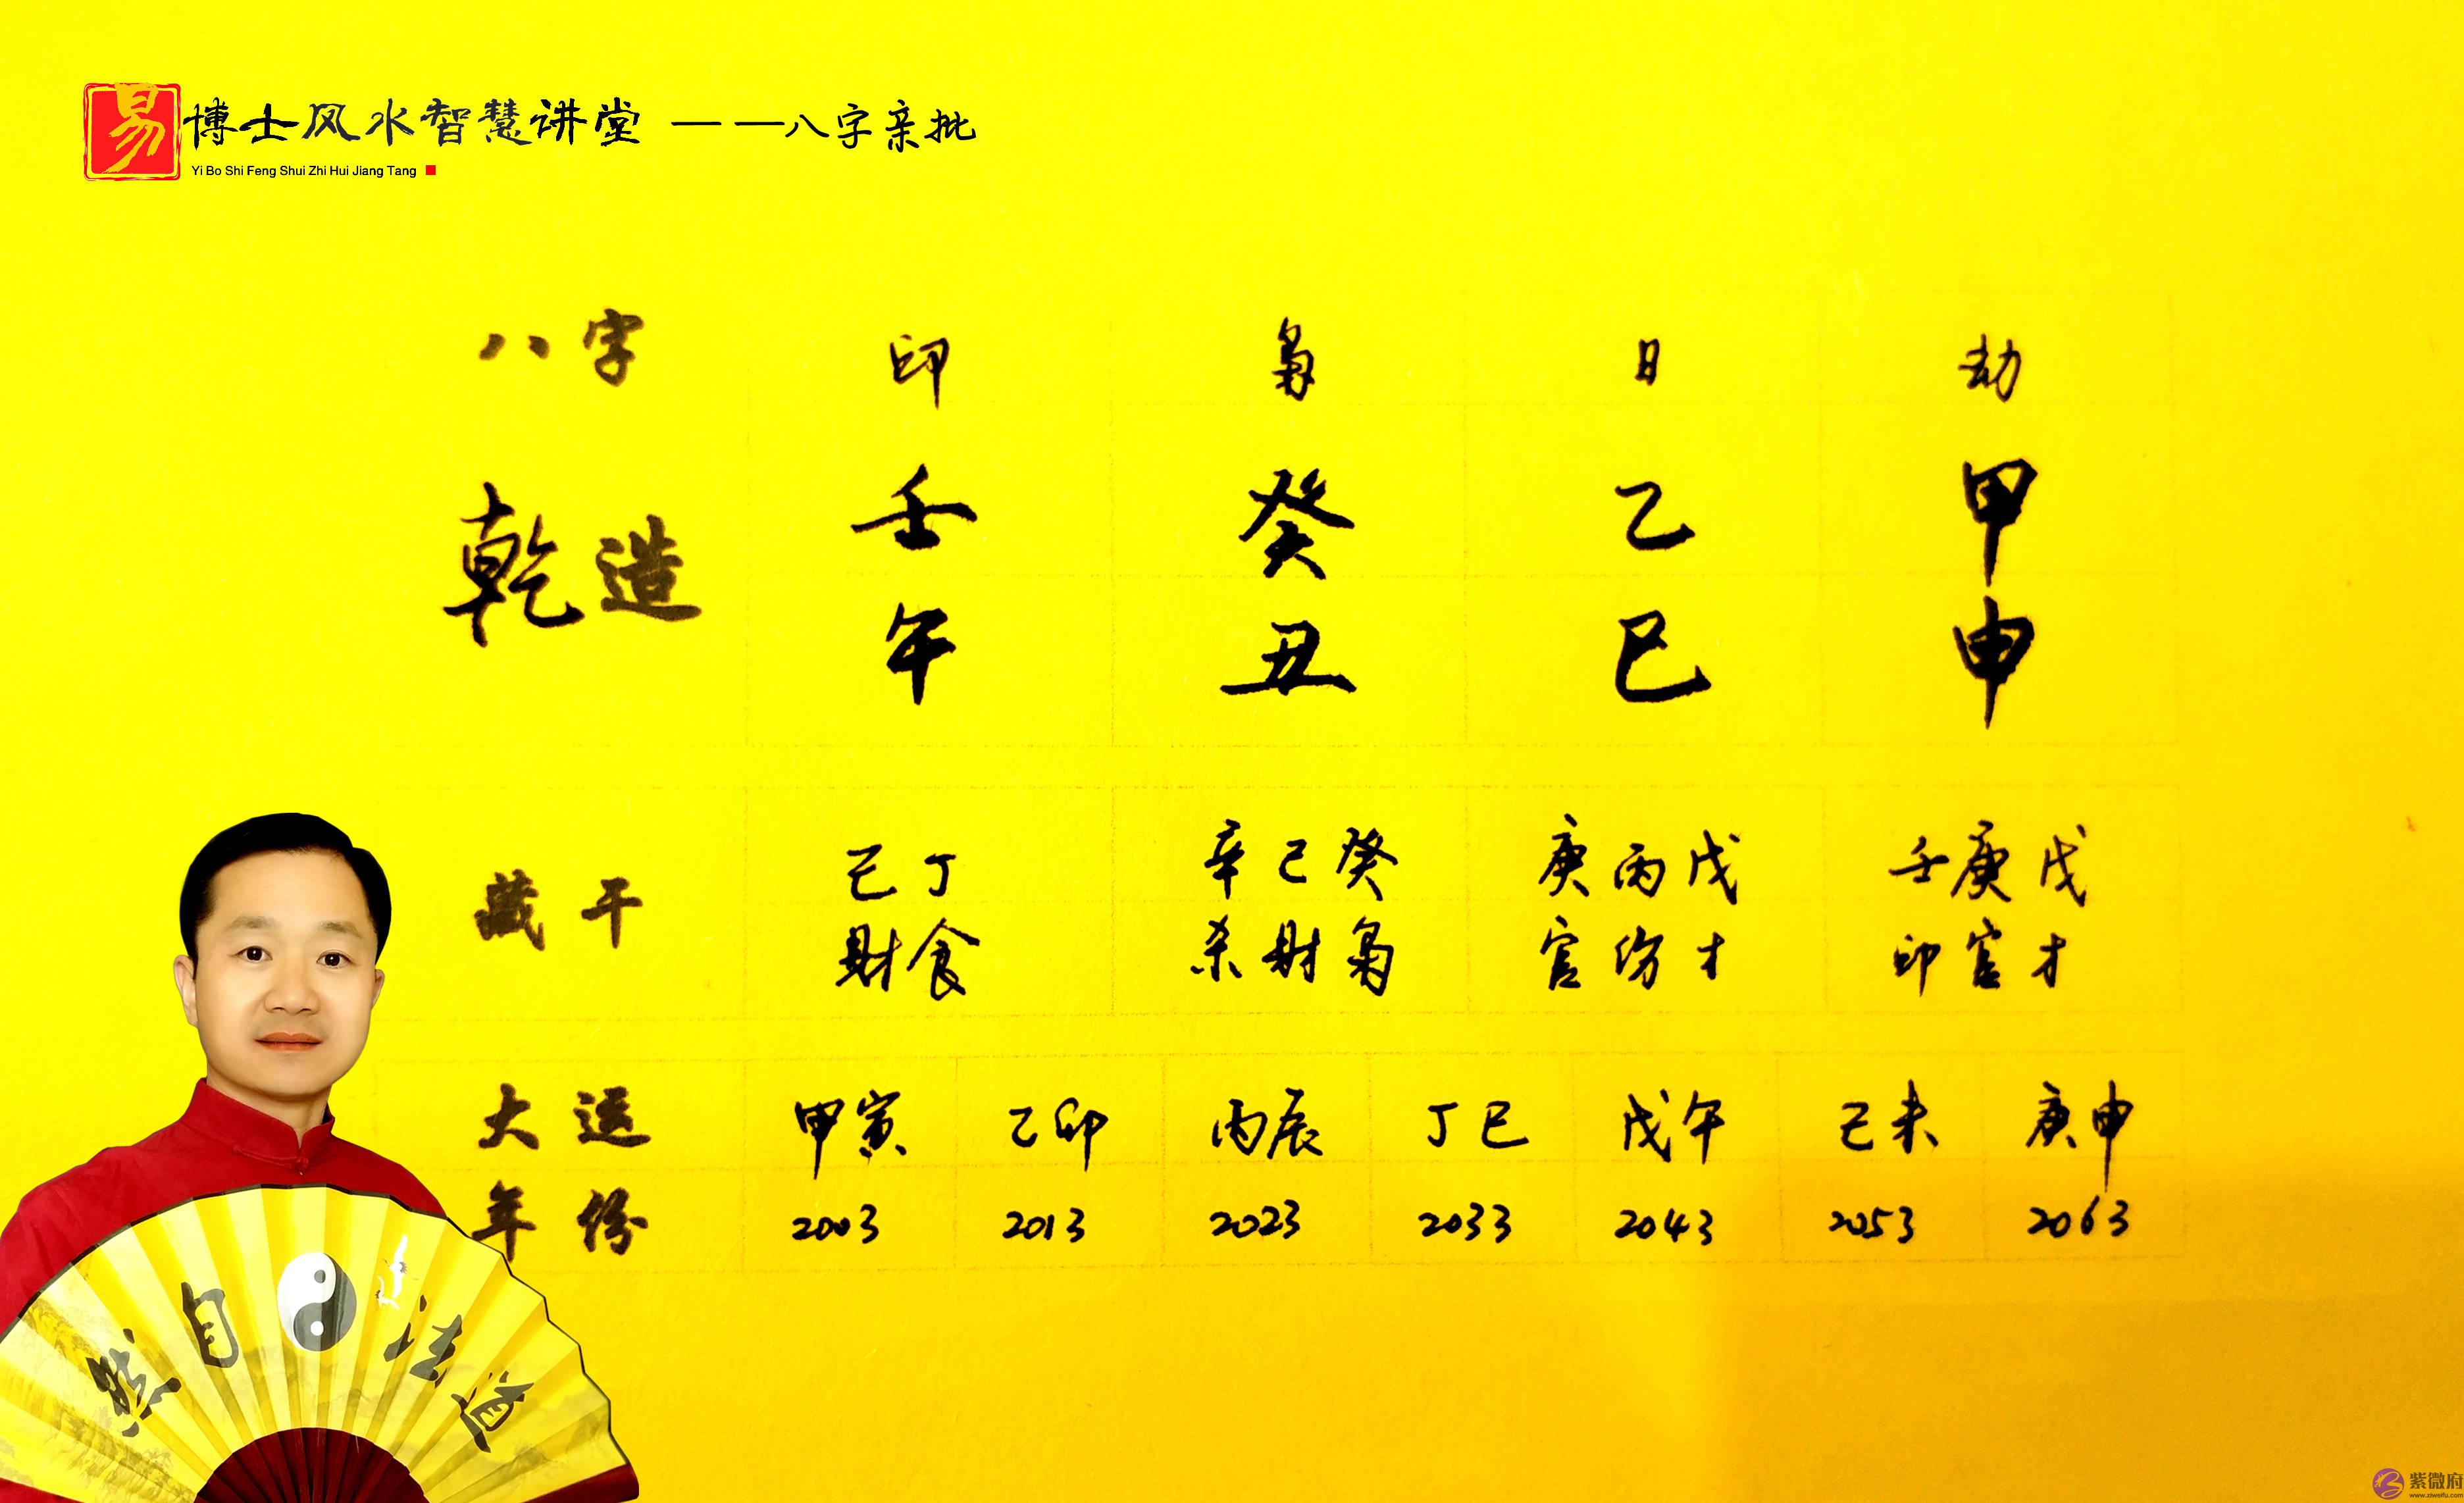 易博士风水智慧讲堂 ——八字亲批
Yi Bo Shi Feng Shui Zhi Hui Jiang Tang
八字 印 枭 日 劫
乾造 壬 癸 乙 甲
午 丑 巳 申
藏干 己丁 辛己癸 庚丙戊 壬庚戊
财食 杀财枭 官伤才 印官才
大运 甲寅 乙卯 丙辰 丁巳 戊午 己未 庚申
年份 2003 2013 2023 2033 2043 2053 2063
道法自然
紫微府
www.ziweifu.com